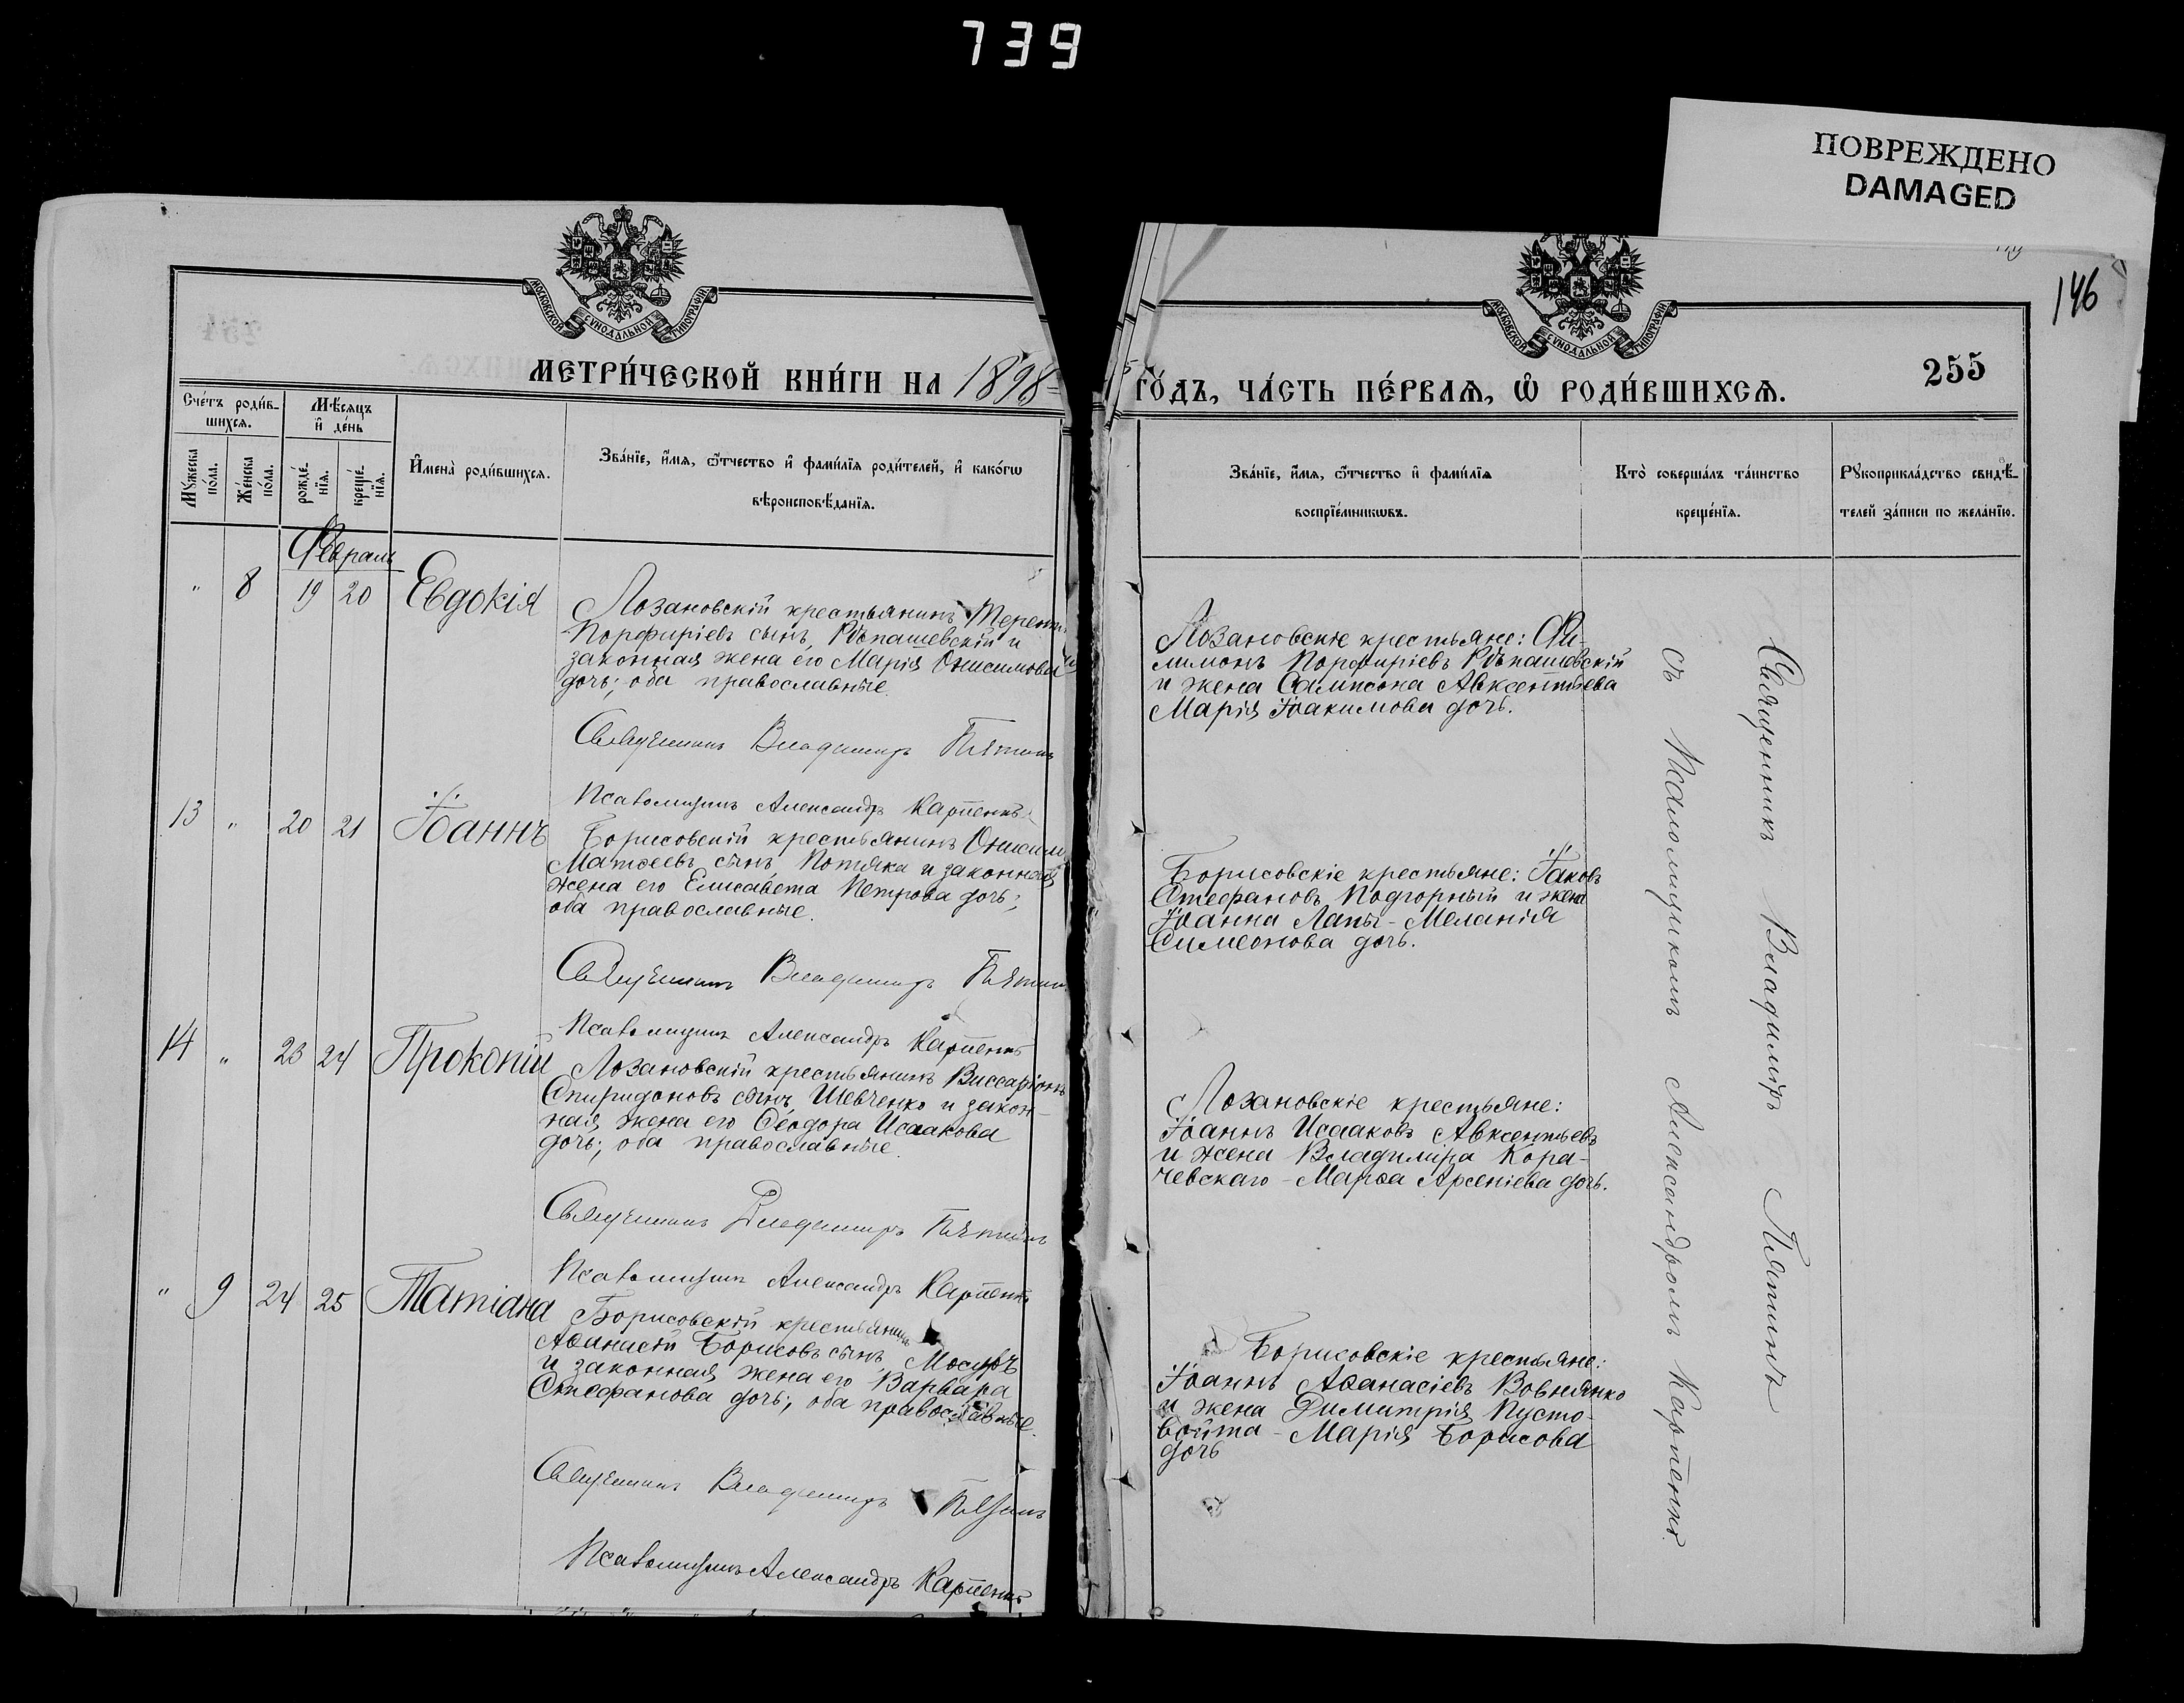 739
ПОВРЕЖДЕНО
DAMAGED
146
МОСКОВСКОЙ СѴНОДАЛЬНОЙ ТИПОГРАФІИ
МОСКОВСКОЙ СѴНОДАЛЬНОЙ ТИПОГРАФІИ
МЕТРИ́ЧЕСКОЙ КНИ́ГИ НА 1898
ГО́ДЪ, ЧА́СТЬ ПЕ́РВАѦ, Ѡ РОДИ́ВШИХСѦ.
255
Сче́тъ роди́в-
шихсѧ.
Мѣсѧцъ
и де́нь
Мꙋ́жеска
по́ла.
Же́нска
по́ла.
рожде́-
нїѧ.
креще́-
нїѧ.
Имена̀ роди́вшихсѧ.
Зва́нїе, и́мѧ, ѻ́тчество и фами́лїѧ роди́телей, и како́гѡ
вѣроисповѣ́данїѧ.
Зва́нїе, и́мѧ, ѻ́тчество и фами́лїѧ
воспрїе́мникѡвъ.
Кто̀ соверша́лъ та́инство
креще́нїѧ.
Рꙋкоприкла́дство свидѣ́-
телей за́писи по жела́нїю.
Февраль
" 8 19 20 Евдокія
Лозановскій крестьянинъ Терент
Порфиріевъ сынъ Рѣпашевскій и
законная жена его Марія Онисимова
дочь; оба православные.
Священникъ Владимиръ Пятинъ
Псаломщикъ Александръ Карпенко
Лозановскіе крестьяне: Фи-
лимонъ Порфиріевъ Рѣпашевскій
и жена Сампсона Авксентьева
Марія Іоакимова дочь.
13 " 20 21 Іоаннъ
Борисовскій крестьянинъ Онисим
Матѳеевъ сынъ Потяка и законная
жена его Елисавета Петрова дочь;
оба православные.
Священникъ Владимиръ Пятин
Псаломщикъ Александръ Карпенко
Борисовскіе крестьяне: Іаковъ
Стефановъ Подгорный и жена
Іоанна Лапы - Меланія
Симеонова дочь.
14 " 23 24 Прокопій
Лозановскій крестьянинъ Виссаріонъ
Спиридоновъ сынъ Шевченко и закон-
ная жена его Ѳеодора Исаакова
дочь; оба православные.
Священникъ Владимиръ Пятинъ
Псаломщикъ Александръ Карпенко
Лозановскіе крестьяне:
Іоаннъ Исааковъ Авксентьевъ
и жена Владиміра Кора-
чевскаго - Марѳа Арсеніева дочь.
" 9 24 25 Татіана
Борисовскій крестьянинъ
Аѳанасій Борисовъ сынъ
и законная жена его Варвара
Стефанова дочь; оба православные.
Священникъ Владимиръ Пятинъ
Псаломщикъ Александръ Карпенко
Борисовскіе крестьяне:
Іоаннъ Аѳанасіевъ Вовнянко
и жена Димитрія Пусто-
войта - Марія Борисова
дочь
Священникъ Владиміръ Пятинъ
съ Псаломщикомъ Александромъ Карпенко